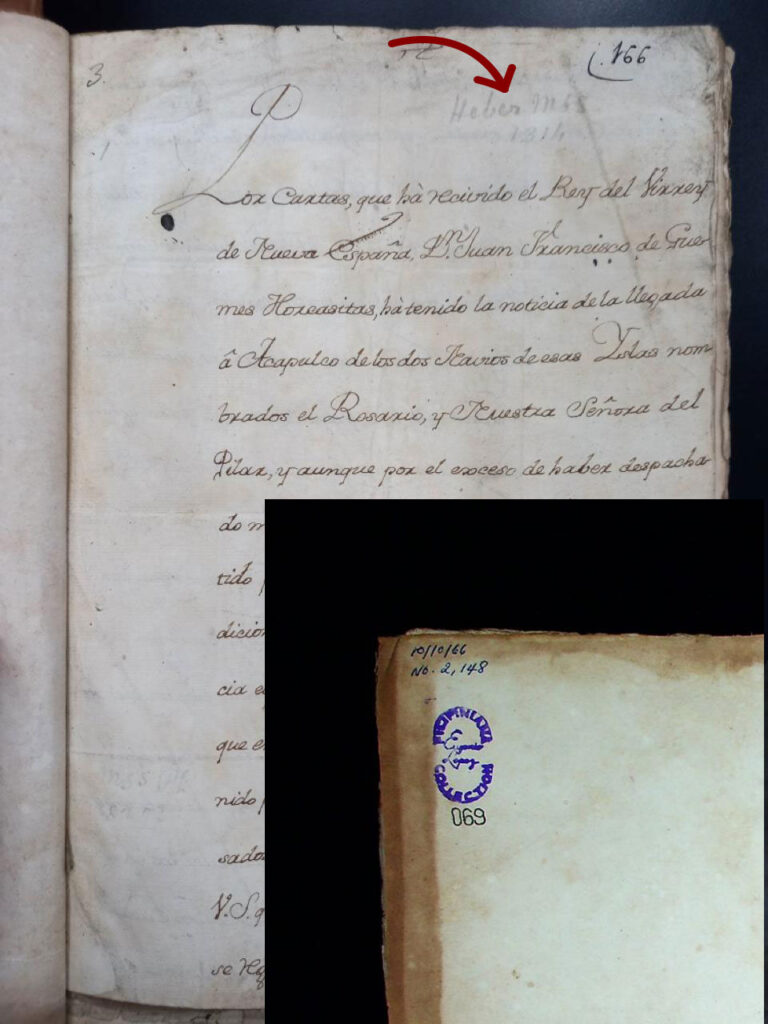 3.
166
Heber Mss
1814
Por Cartas, que hà recivido el Rey del Virrey
de Nueva España, Dn. Juan Francisco de Gue-
mes Horcasitas, hà tenido la noticia de la llegada
â Acapulco de los dos Navios de esas Yslas nom-
brados el Rosario, y Nuestra Señora del
Pilar, y aunque por el exceso de haber despacha-
do m
tido
dicion
cia e
que e
nido
sados
V.S. q
se
10/10/66
No. 2, 148
FILIPINIANA
COLLECTION
069